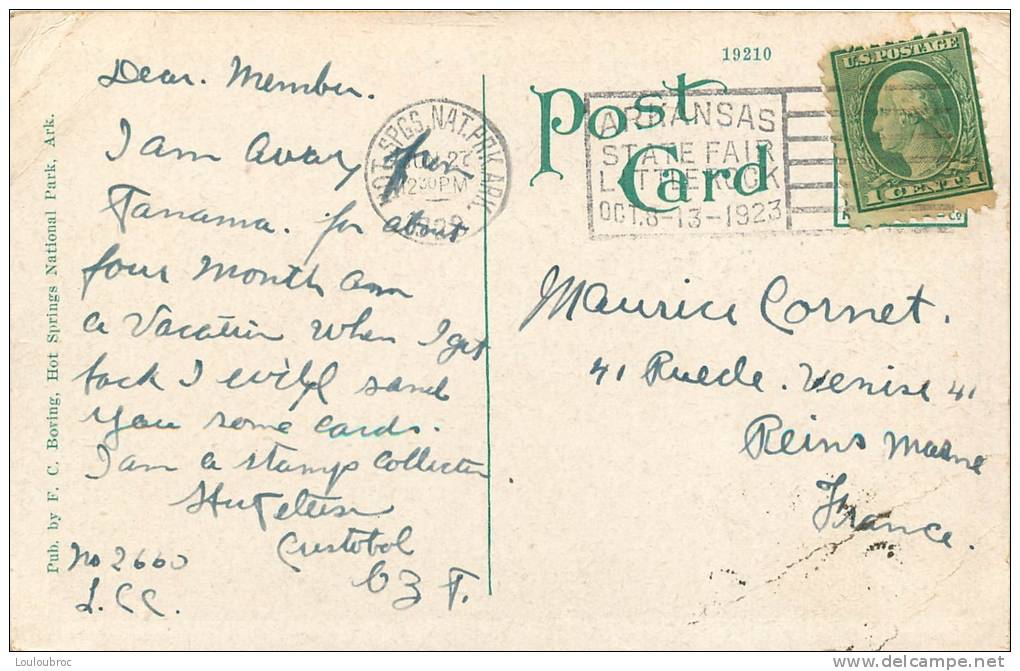 19210
Dear. Member.
I am away from
Panama. for about
four month am
a Vacation When I get
back I will sand
you some cards.
I am a stamps collector
Cristobal
C Z T.
No 2660
L.CC.
Pub. by F. C. Boving, Hot Springs National Park, Ark.
HOT SPGS. NAT. PRK ARK.
12 30 PM
Post Card
ARKANSAS
STATE FAIR
LITTLE ROCK
OCT. 8-13-1923
U.S. POSTAGE
1 CENT 1
Maurice Cornet.
41 Ruede. Venise 41
Reins Marne
France.
Louloubroc
www.delcampe.net